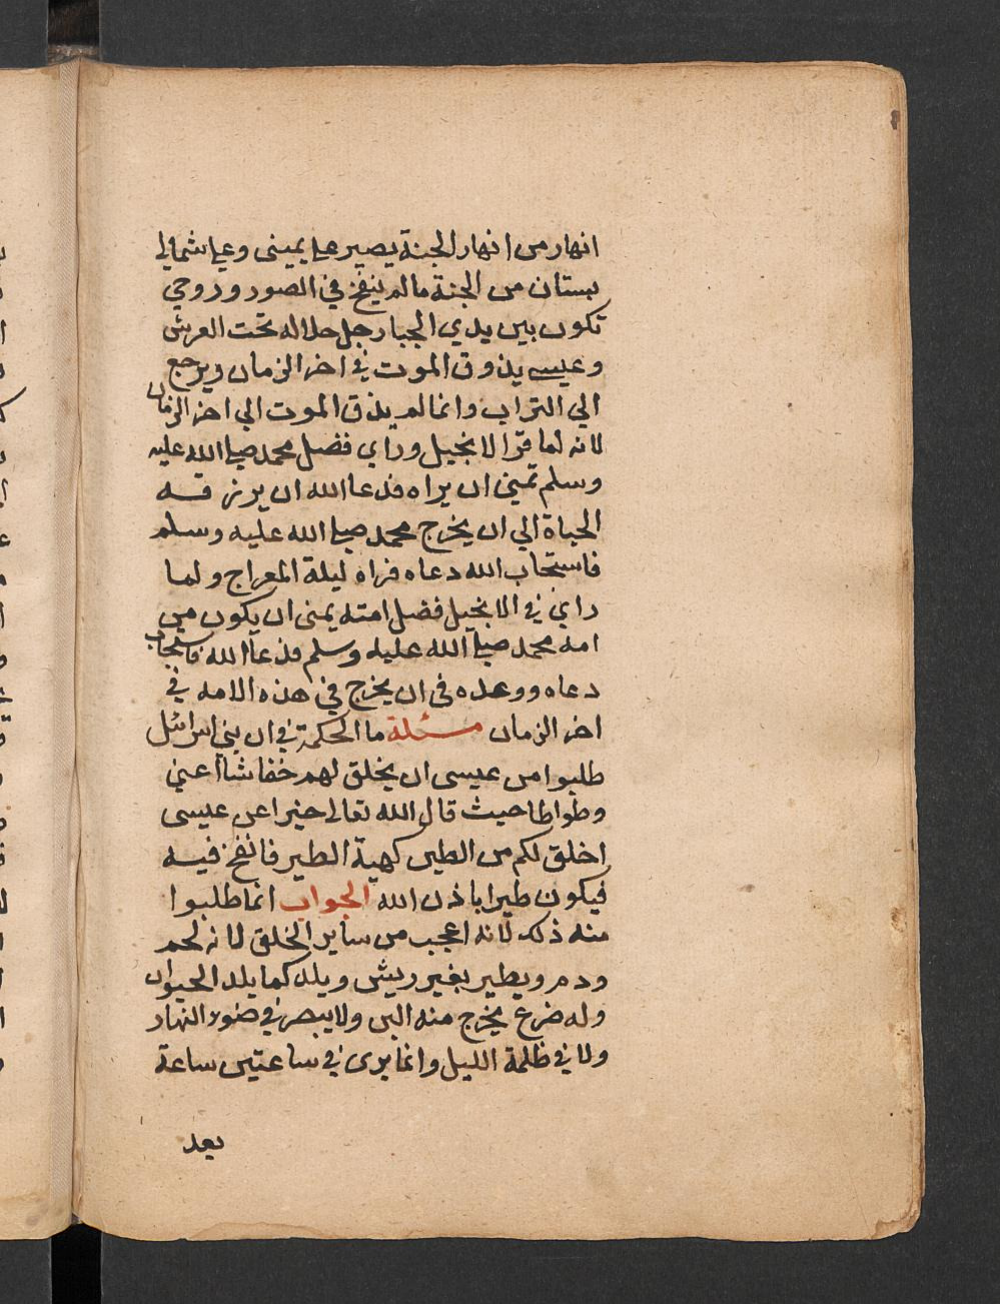 انهار من انهار الجنة يصير على يميني وعلى شمالي
بستان من الجنة ما لم ينفخ في الصور وروحي
تكون بين يدي الجبار جل جلاله تحت العرش
وعيسى يذوق الموت في اخر الزمان ويرجع
الي التراب وانما لم يذق الموت الي اخر الزمان
لانه لما قرا الانجيل وراي فضل محمد صلى الله عليه
وسلم تمني ان يراه فدعا الله ان يرزقه
الحياة الي ان يخرج محمد صلى الله عليه وسلم
فاستجاب الله دعاه فراه ليلة المعراج ولما
راي في الانجيل فضل امته يمنى ان يكون من
امة محمد صلى الله عليه وسلم فدعا الله فاستجاب
دعاه ووعده في ان يخرج في هذه الامه في
اخر الزمان مسئلة ما الحكمة في ان بني اسرائل
طلبوا من عيسى ان يخلق لهم خفاشا اعني
وطواطا حيث قال الله تعالى خبرا عن عيسى
اخلق لكم من الطين كهية الطير فانفخ فيه
فيكون طيرا باذن الله الجواب انما طلبوا
منه ذلك لانه اعجب من ساير الخلق لانه لحم
ودم ويطير بغير ريش ويلد كما يلد الحيوان
وله ضرع يخرج منه البن ولا يبصر في ضوء النهار
ولا في ظلمة الليل وانما يرى في ساعتين ساعة
بعد